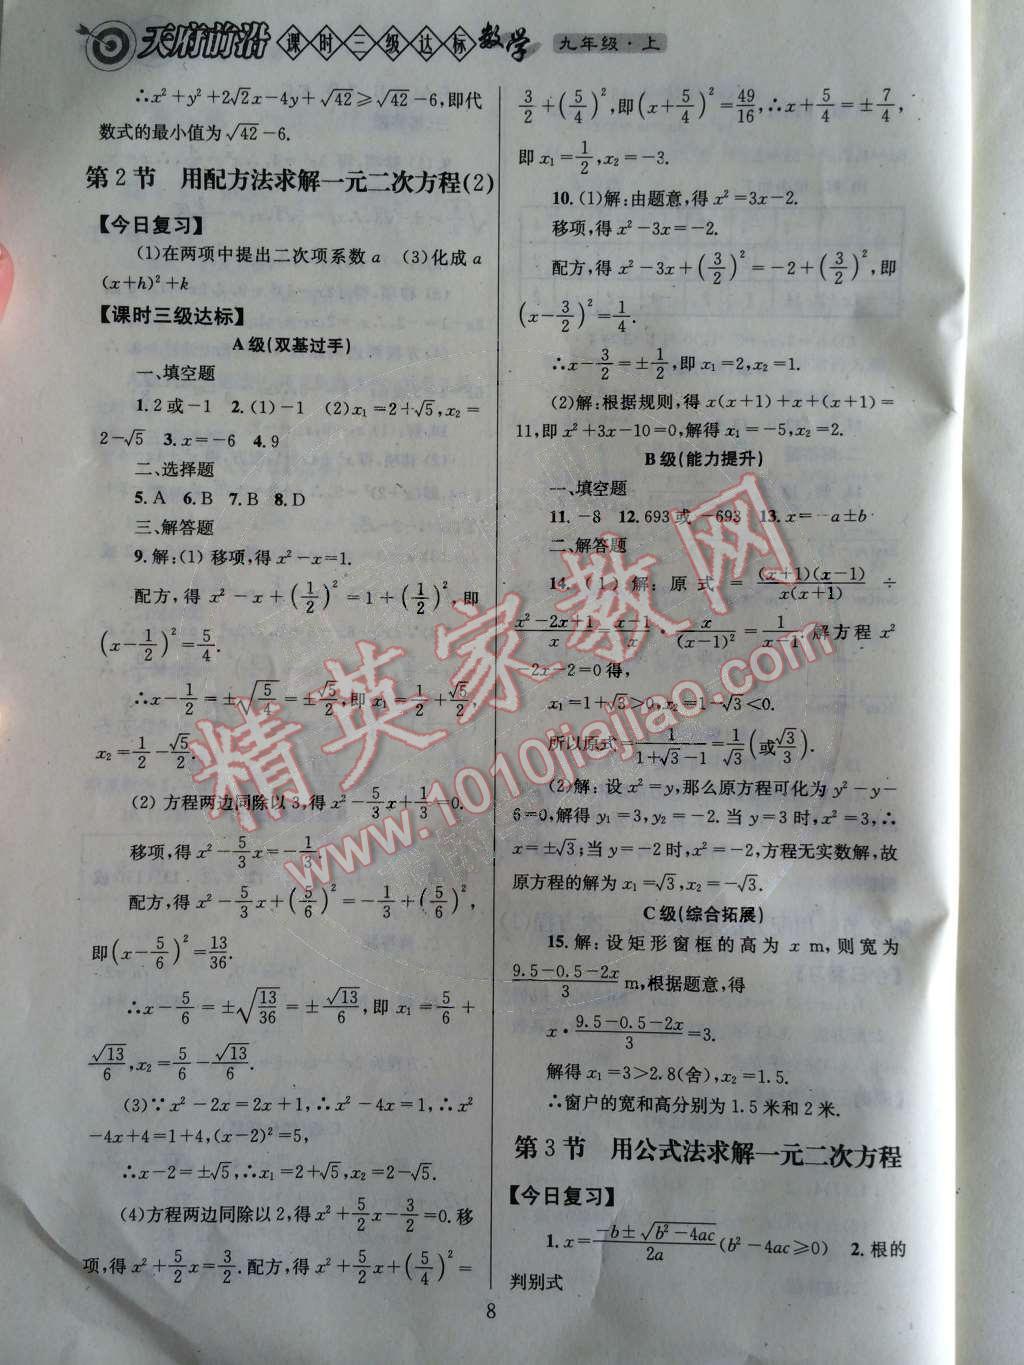 天府前沿 课时三级达标 数学 九年级·上
∴x²+y²+2√2x-4y+√42≥√42-6,即代
数式的最小值为√42-6.
第2节 用配方法求解一元二次方程(2)
【今日复习】
(1)在两项中提出二次项系数a (3)化成a
(x+h)²+k
【课时三级达标】
A级(双基过手)
一、填空题
1.2或-1 2.(1)-1 (2)x₁=2+√5,x₂=
2-√5 3.x=-6 4.9
二、选择题
5.A 6.B 7.B 8.D
三、解答题
9.解:(1)移项,得x²-x=1.
配方,得x²-x+(1/2)²=1+(1/2)²,即
(x-1/2)²=5/4.
∴x-1/2=±√(5/4)=±√5/2,即x₁=1/2+√5/2,
x₂=1/2-√5/2.
(2)方程两边同除以3,得x²-5/3x+1/3=0.
移项,得x²-5/3x=-1/3.
配方,得x²-5/3x+(5/6)²=-1/3+(5/6)²,
即(x-5/6)²=13/36.
∴x-5/6=±√(13/36)=±√13/6,即x₁=5/6+
√13/6,x₂=5/6-√13/6.
(3)∵x²-2x=2x+1,∴x²-4x=1,∴x²
-4x+4=1+4,(x-2)²=5,
∴x-2=±√5,∴x₁=2+√5,x₂=2-√5.
(4)方程两边同除以2,得x²+5/2x-3/2=0.移
项,得x²+5/2x=3/2.配方,得x²+5/2x+(5/4)²=
3/2+(5/4)²,即(x+5/4)²=49/16,∴x+5/4=±7/4,
即x₁=1/2,x₂=-3.
10.(1)解:由题意,得x²=3x-2.
移项,得x²-3x=-2.
配方,得x²-3x+(3/2)²=-2+(3/2)²,即
(x-3/2)²=1/4.
∴x-3/2=±1/2,即x₁=2,x₂=1.
(2)解:根据规则,得x(x+1)+x+(x+1)=
11,即x²+3x-10=0,解得x₁=-5,x₂=2.
B级(能力提升)
一、填空题
11.-8 12.693或-693 13.x=-a±b
二、解答题
14.(1)解:原式=(x+1)(x-1)/x(x+1)÷
x²-2x+1/x=x-1/x·x/(x-1)²=1/x-1.解方程x²
-2x-2=0得,
x₁=1+√3>0,x₂=1-√3<0.
所以原式=1/(1+√3-1)=1/√3(或√3/3).
(2)解:设x²=y,那么原方程可化为y²-y-
6=0,解得y₁=3,y₂=-2.当y=3时,x²=3,∴
x=±√3;当y=-2时,x²=-2,方程无实数解,故
原方程的解为x₁=√3,x₂=-√3.
C级(综合拓展)
15.解:设矩形窗框的高为x m,则宽为
(9.5-0.5-2x)/3 m,根据题意,得
x·(9.5-0.5-2x)/3=3.
解得x₁=3>2.8(舍),x₂=1.5.
∴窗户的宽和高分别为1.5米和2米.
第3节 用公式法求解一元二次方程
【今日复习】
1.x=(-b±√(b²-4ac))/2a(b²-4ac≥0) 2.根的
判别式
8
精英家教网
www.1010jiajiao.com